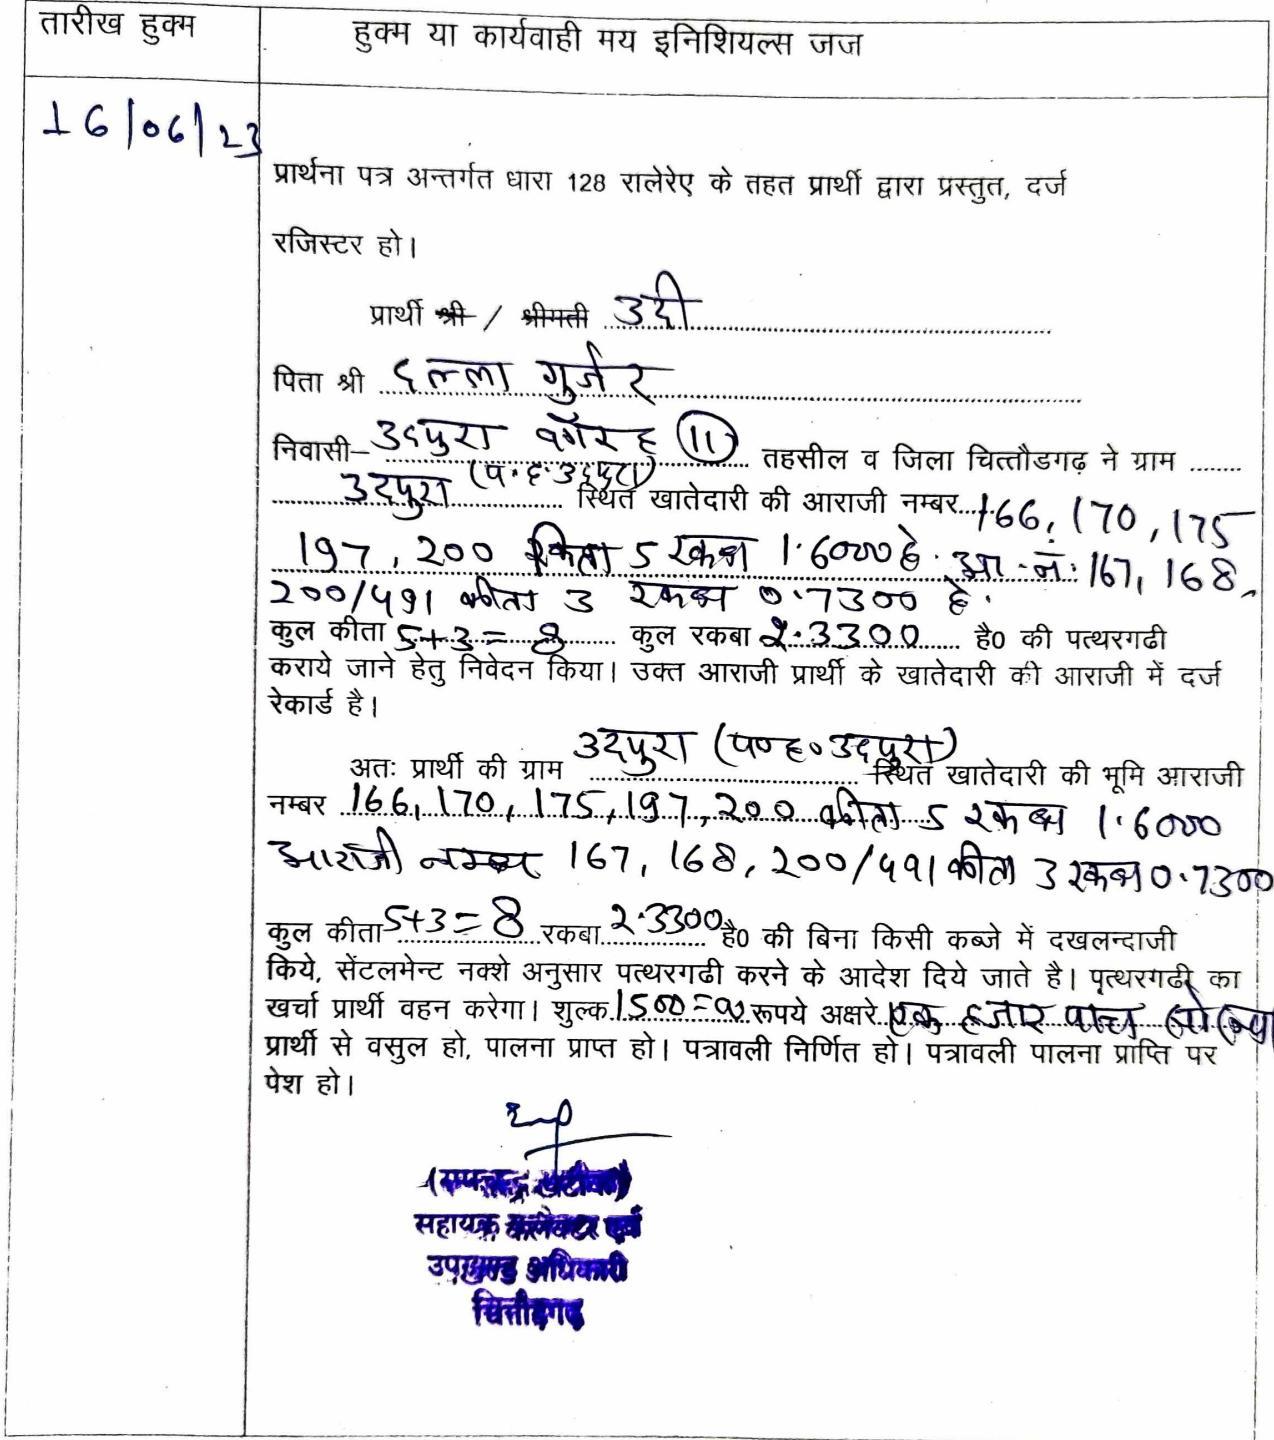 तारीख हुक्म
हुक्म या कार्यवाही मय इनिशियल्स जज
16/06/23
प्रार्थना पत्र अन्तर्गत धारा 128 रालेरेए के तहत प्रार्थी द्वारा प्रस्तुत, दर्ज
रजिस्टर हो।
प्रार्थी श्री / श्रीमती उदी
पिता श्री दल्ला गुर्जर
निवासी– उदपुरा वगैरह (11) तहसील व जिला चित्तौडगढ़ ने ग्राम ........
उदपुरा (प.ह.उदपुरा) स्थित खातेदारी की आराजी नम्बर 166, 170, 175
197, 200 किता 5 रकबा 1.6000 है. आ.नं. 167, 168,
200/491 कीता 3 रकबा 0.7300 है.
कुल कीता 5+3=8 कुल रकबा 2.3300 है0 की पत्थरगढी
कराये जाने हेतु निवेदन किया। उक्त आराजी प्रार्थी के खातेदारी की आराजी में दर्ज
रेकार्ड है।
अतः प्रार्थी की ग्राम उदपुरा (प०ह०उदपुरा) स्थित खातेदारी की भूमि आराजी
नम्बर 166, 170, 175, 197, 200 कीता 5 रकबा 1.6000
आराजी नम्बर 167, 168, 200/491 कीता 3 रकबा 0.7300
कुल कीता 5+3=8 रकबा 2.3300 है0 की बिना किसी कब्जे में दखलन्दाजी
किये, सेंटलमेन्ट नक्शे अनुसार पत्थरगढी करने के आदेश दिये जाते है। पृत्थरगढी का
खर्चा प्रार्थी वहन करेगा। शुल्क 1500=00 रूपये अक्षरे एक हजार पान्च सो
प्रार्थी से वसुल हो, पालना प्राप्त हो। पत्रावली निर्णित हो। पत्रावली पालना प्राप्ति पर
पेश हो।
(रामचन्द्र खटीक)
सहायक कलेक्टर एवं
उपखण्ड अधिकारी
चित्तौड़गढ़